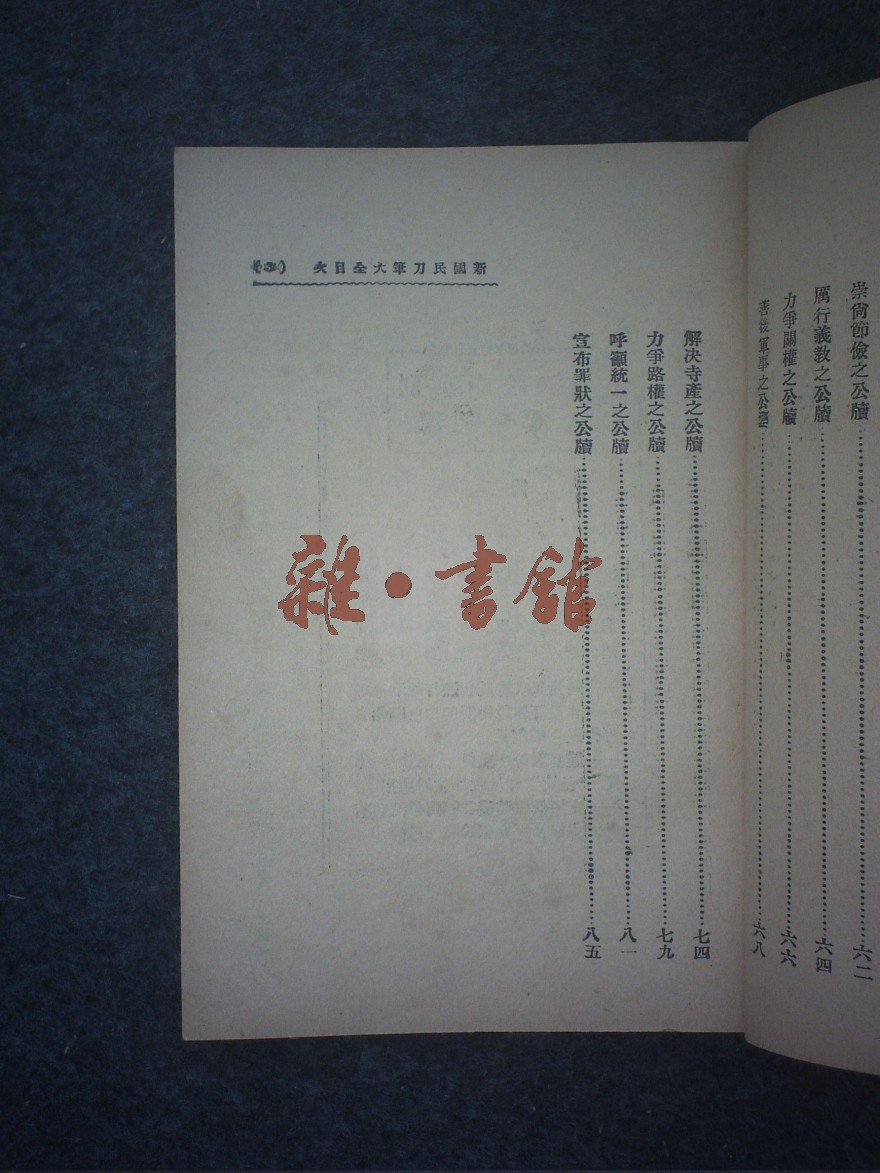 崇尚節儉之公牘……六二
厲行義教之公牘……六四
力爭關權之公牘……六六
善後軍事之公牘……六八
新國民刀筆大全目次
解決寺產之公牘……七四
力爭路權之公牘……七九
呼籲統一之公牘……八一
宣布罪狀之公牘……八五
雜·書館